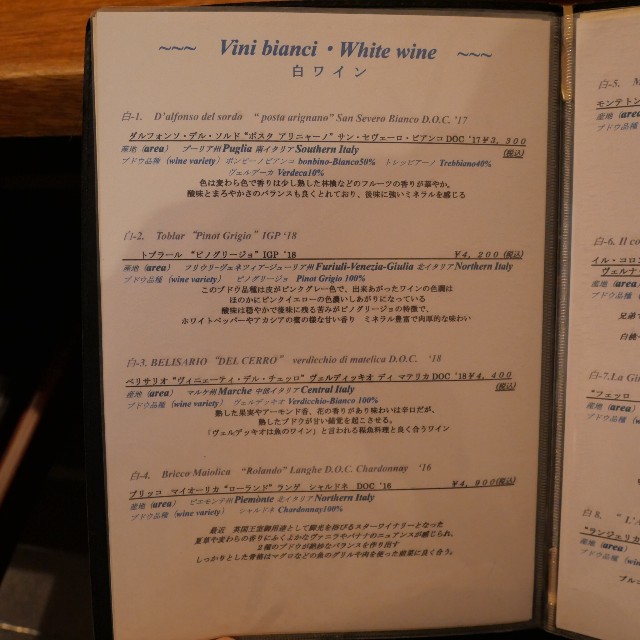 ~~~ Vini bianci・White wine ~~~
白ワイン
白-1. D'alfonso del sordo “ posta arignano” San Severo Bianco D.O.C. '17
ダルフォンソ・デル・ソルド“ポスタ アリニャーノ” サン・セヴェーロ・ビアンコ DOC '17 ¥3, 300 (税込)
産地 (area) プーリア州 Puglia 南イタリア Southern Italy
ブドウ品種 (wine variety) ボンビーノビアンコ bonbino-Bianco50% トレッビアーノ Trebbiano40%
ヴェルデーカ Verdeca10%
色は麦わら色で香りは少し熟した林檎などのフルーツの香りが華やか。
酸味とまろやかさのバランスも良くとれており、後味に強いミネラルを感じる
白-2. Toblar “Pinot Grigio” IGP '18
トブラール “ピノグリージョ” IGP '18 ¥4, 200 (税込)
産地 (area) フリウリ・ヴェネツィア・ジューリア州 Furiuli-Venezia-Giulia 北イタリア Northern Italy
ブドウ品種 (wine variety) ピノグリージョ Pinot Grigio 100%
このブドウ品種は皮がピンクグレー色で、出来あがったワインの色調は
ほのかにピンクイエローの色濃いしあがりになっている
酸味は穏やかで後味に残る苦みがピノグリージョの特徴で、
ホワイトペッパーやアカシアの蜜の様な甘い香り ミネラル豊富で肉厚的な味わい
白-3. BELISARIO “DEL CERRO” verdicchio di matelica D.O.C. '18
ベリサリオ “ヴィニェーティ・デル・チェッロ” ヴェルディッキオ ディ マテリカ DOC '18 ¥4, 400 (税込)
産地 (area) マルケ州 Marche 中部イタリア Central Italy
ブドウ品種 (wine variety) ヴェルディッキオ Verdicchio-Bianco 100%
熟した果実やアーモンド香、花の香りがあり味わいは辛口だが、
熟したブドウが甘い錯覚を起こさせる。
「ヴェルデッキオは魚のワイン」と言われる程魚料理と良く合うワイン
白-4. Bricco Maiolica “Rolando” Langhe D.O.C. Chardonnay '16
ブリッコ マイオーリカ “ローランド” ランゲ シャルドネ DOC '16 ¥4, 900 (税込)
産地 (area) ピエモンテ州 Piemònte 北イタリア Northern Italy
ブドウ品種 (wine variety) シャルドネ Chardonnay100%
最近 英国王室御用達として脚光を浴びるスターワイナリーとなった
夏草や麦わらの香りにふくよかなヴァニラやバナナのニュアンスが感じられ、
2種のブドウが絶妙なバランスを作り出す
しっかりとした骨格はマグロなどの魚のグリルや肉を使った前菜に良く合う。
白-5. M
モンテトン
産地 (area)
ブドウ品種 (wi
白-6. Il co
イル・コロン
ヴェルナッ
産地 (area
ブドウ品種
兄弟で
白-7.La Gin
“フェッロ
産地 (area)
ブドウ品種 (
白 8. “ L'A
“ランジェリカ
産地 (area)
ブドウ品種 (